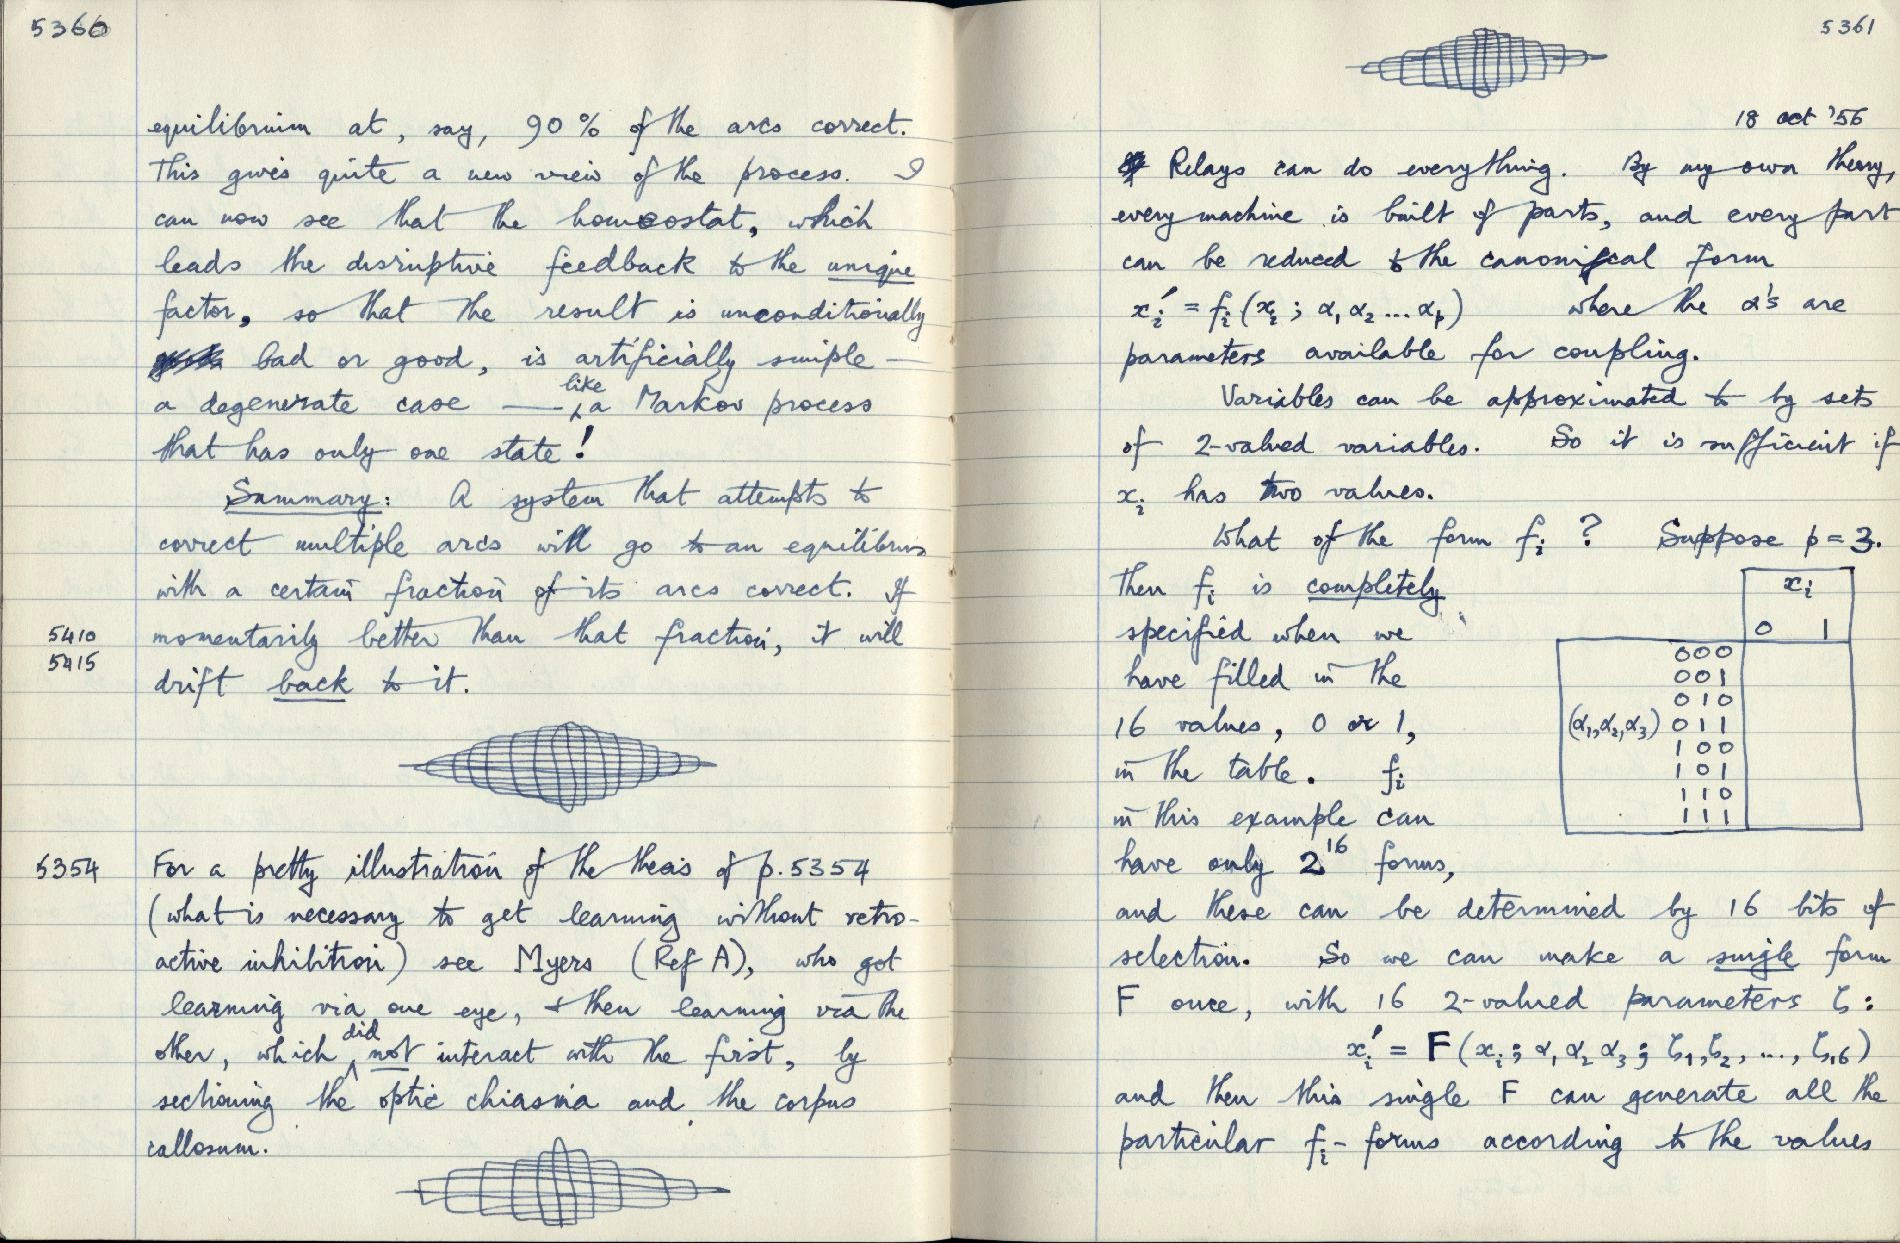 5360
equilibrium at, say, 90% of the arcs correct.
This gives quite a new view of the process. I
can now see that the homeostat, which
leads the disruptive feedback to the unique
factor, so that the result is unconditionally
bad or good, is artificially simple —
a degenerate case — like a Markov process
that has only one state!
Summary: A system that attempts to
correct multiple arcs will go to an equilibrium
with a certain fraction of its arcs correct. If
5410 momentarily better than that fraction, it will
5415
drift back to it.
5354 For a pretty illustration of the thesis of p. 5354
(what is necessary to get learning without retro-
active inhibition) see Myers (Ref A), who got
learning via one eye, & then learning via the
other, which did not interact with the first, by
sectioning the optic chiasma and the corpus
callosum.
5361
18 oct '56
Relays can do everything. By my own theory,
every machine is built of parts, and every part
can be reduced to the canonical form
xi' = fi (xi ; α1 α2 ... αp) where the α's are
parameters available for coupling.
Variables can be approximated to by sets
of 2-valued variables. So it is sufficient if
xi has two values.
What of the form fi ? Suppose p = 3.
Then fi is completely
specified when we
have filled in the
16 values, 0 or 1,
in the table. fi
in this example can
have only 2^16 forms,
xi
0 1
000
001
010
(α1,α2,α3) 011
100
101
110
111
and these can be determined by 16 bits of
selection. So we can make a single form
F once, with 16 2-valued parameters ζ:
xi' = F (xi ; α1 α2 α3 ; ζ1, ζ2, ..., ζ16)
and then this single F can generate all the
particular fi - forms according to the values